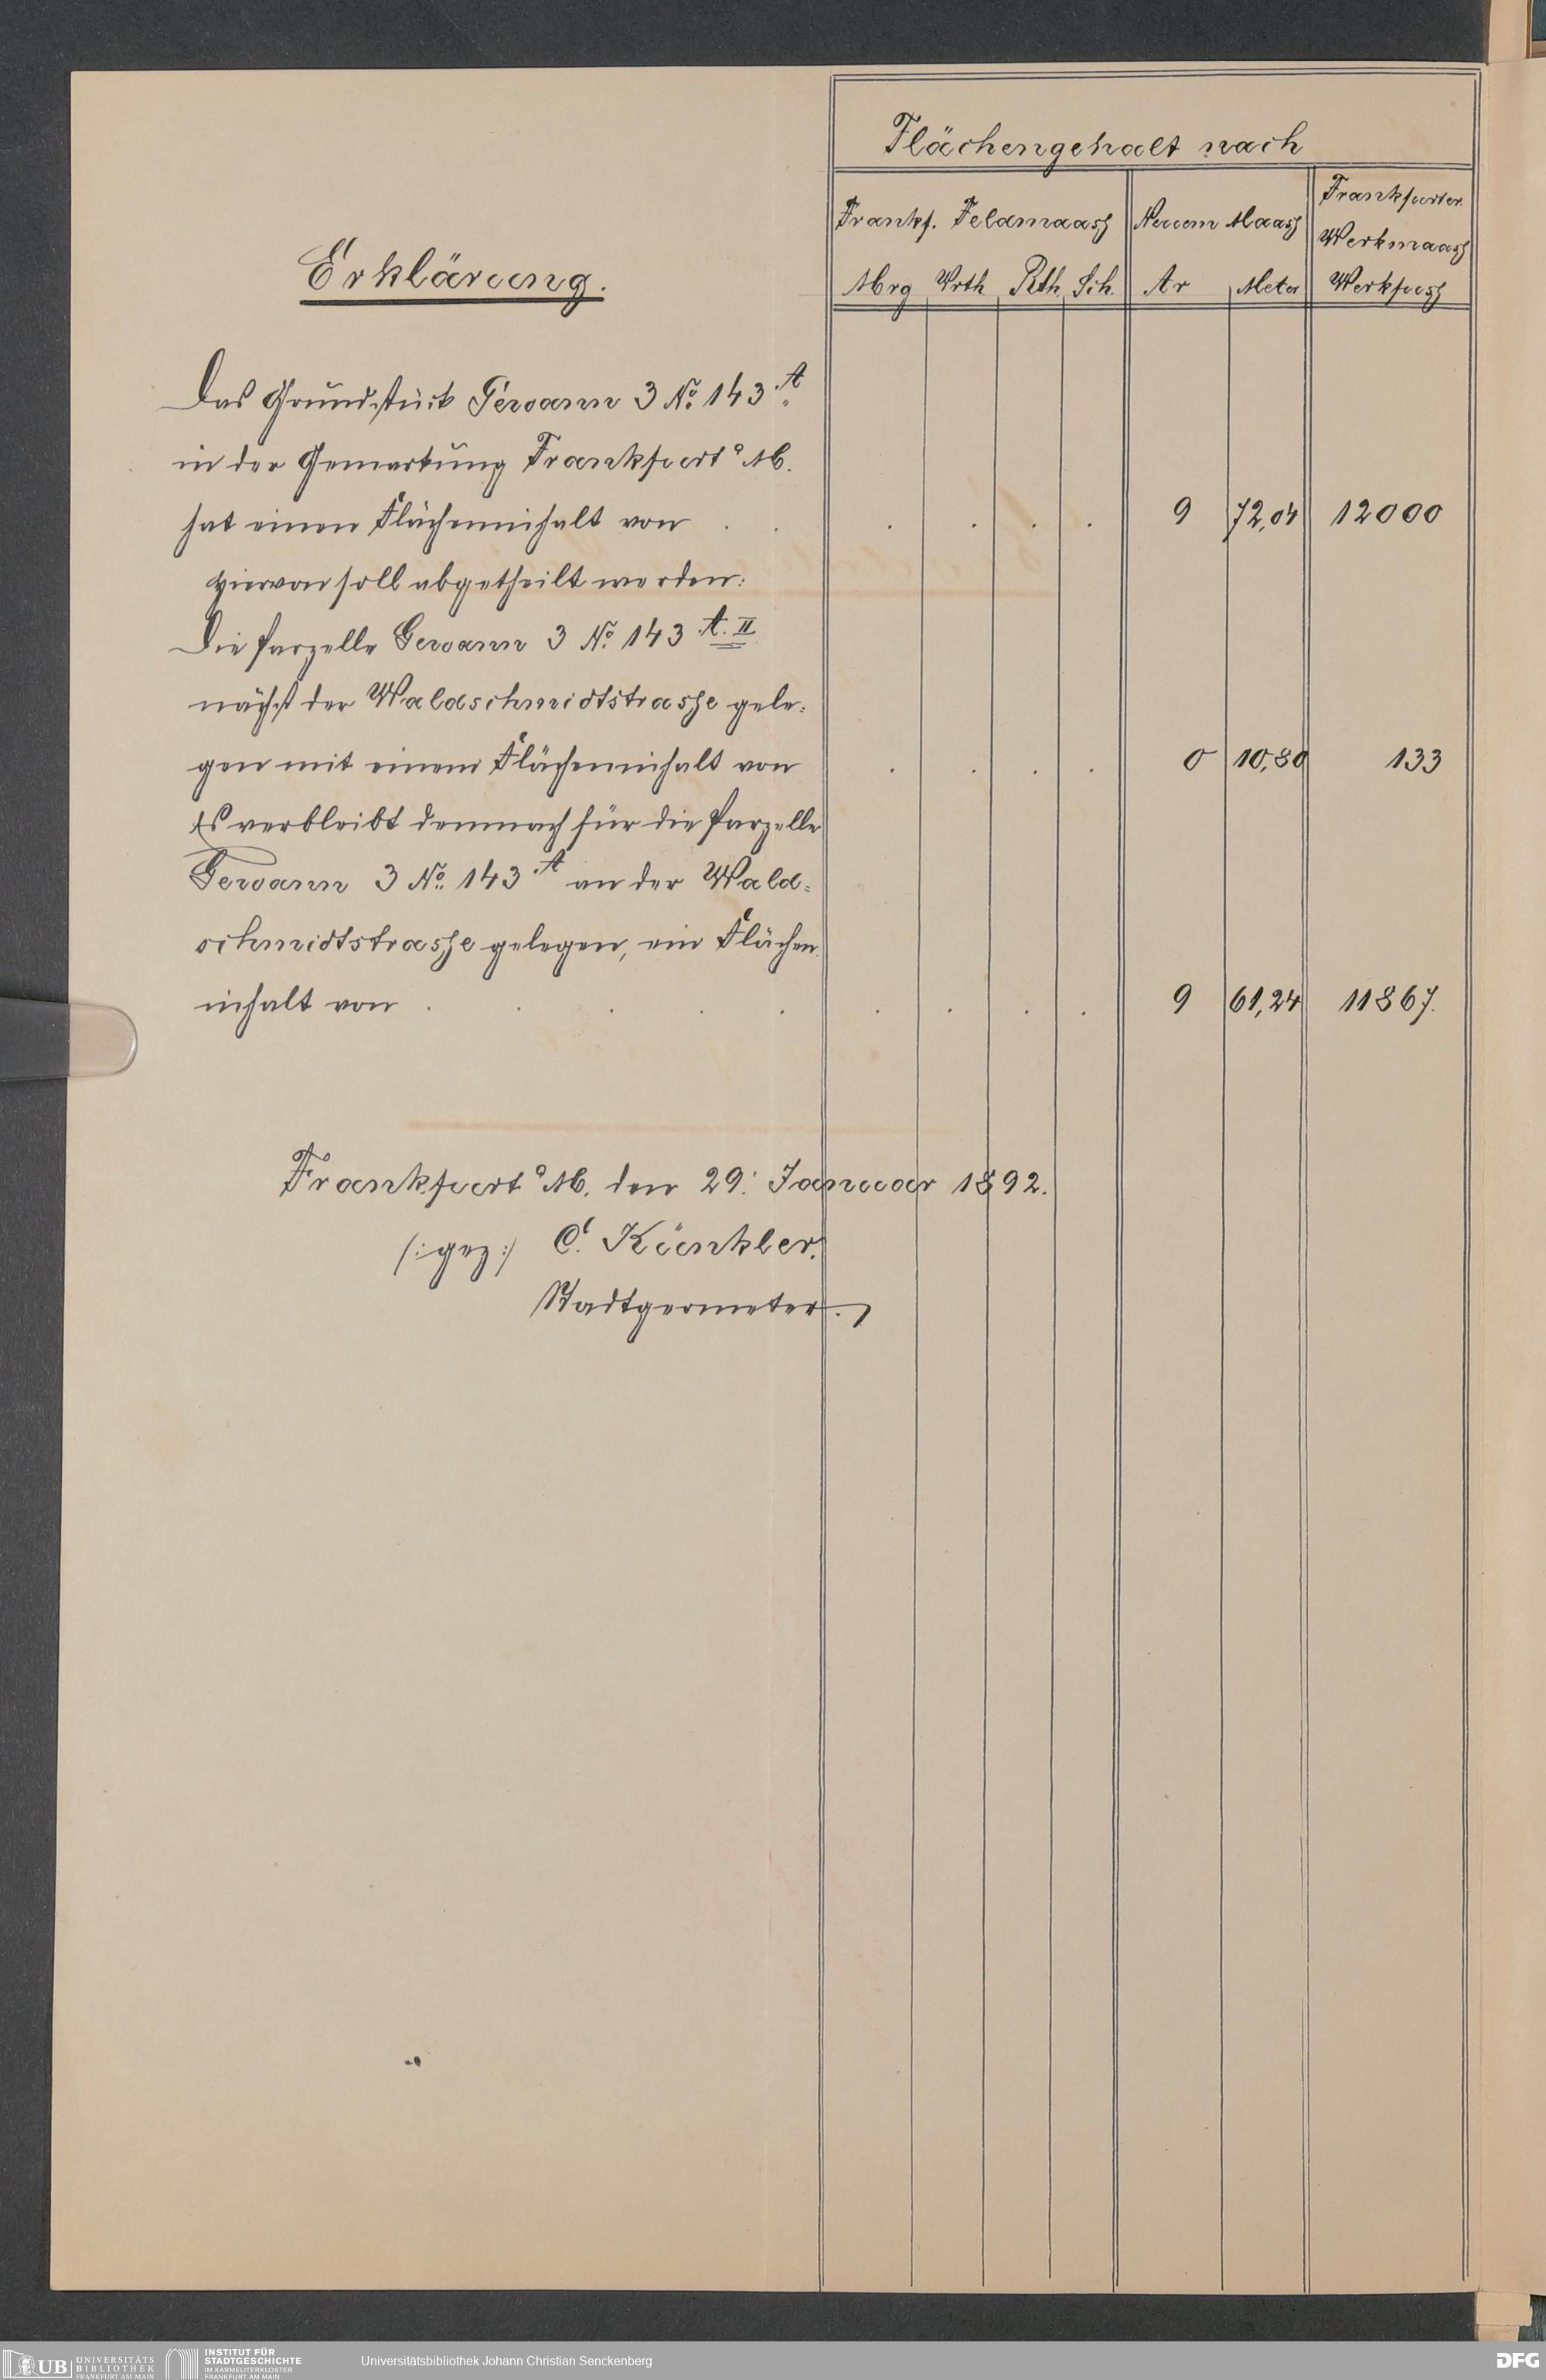 Flächengehalt nach
Frankf. Feldmaaß
Neuem Maaß
Frankfurter
Werkmaaß
Mrg Vrth Rth Sch.
Ar Meter
Werkfuß
Erklärung.
Das Grundstück Gewann 3 No. 143 A.
in der Gemarkung Frankfurt a. M.
hat einen Flächeninhalt von . . . . . . 9 72,04 12000
Hiervon soll abgetheilt werden:
Die Parzelle Gewann 3 No. 143 A. II
nächst der Waldschmidtstrasse gele-
gen mit einem Flächeninhalt von . . . . 0 10,80 133
Es verbleibt demnach für die Parzelle
Gewann 3 No. 143 A an der Wald-
schmidtstrasse gelegen, ein Flächen-
inhalt von . . . . . . . . . 9 61,24 11867.
Frankfurt a. M. den 29. Januar 1892.
(: gez :) C. Künkler.
Stadtgeometer.
UB UNIVERSITÄTS
BIBLIOTHEK
FRANKFURT AM MAIN
INSTITUT FÜR
STADTGESCHICHTE
IM KARMELITERKLOSTER
FRANKFURT AM MAIN
Universitätsbibliothek Johann Christian Senckenberg
DFG